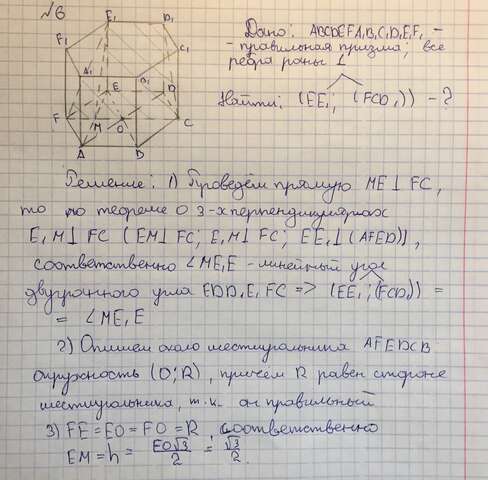 №6
E₁ D₁
F₁ C₁
A₁ B₁
E D
F M O C
A B
Дано: ABCDEFA₁B₁C₁D₁E₁F₁ -
- правильная призма; все
ребра равны 1
Найти: (EE₁; (FCD₁)) - ?
Решение: 1) Проведём прямую ME⊥FC,
то по теореме о 3-х перпендикулярах
E₁M⊥FC (EM⊥FC; E₁M⊥FC; EE₁⊥(AFED)),
соответственно ∠ME₁E - линейный угол
двугранного угла EDD₁E₁FC => (EE₁; (FCD₁)) =
= ∠ME₁E
2) Опишем около шестиугольника AFEDCB
окружность (O;R), причем R равен стороне
шестиугольника, т.к. он правильный
3) FE=EO=FO=R, соответственно
EM=h= EO√3/2 = √3/2